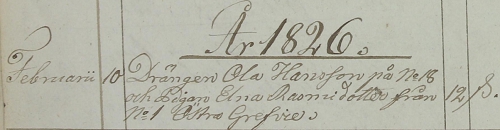 År 1826.
Februarii 10 Drängen Ola Hansson på No 18
och Pigan Elna Rasmidotter från 12 ß.
No 1 Östra Grefvie.